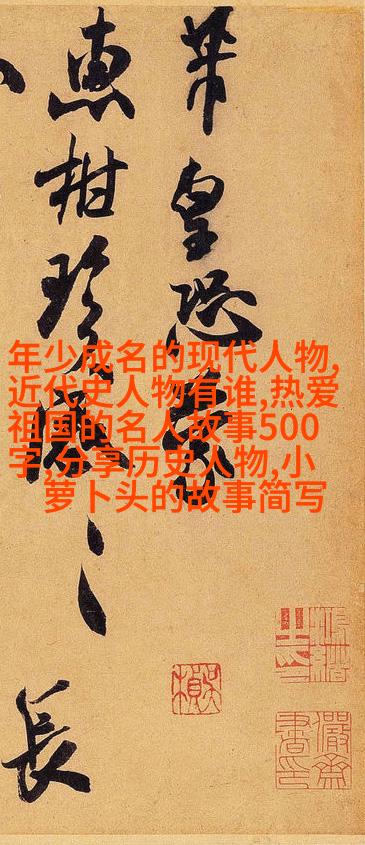 芾皇恐
惠柑珍感〻
長
年少成名的现代人物,
近代史人物有谁,热爱
祖国的名人故事500
字,分享历史人物,小
萝卜头的故事简写
吳楨